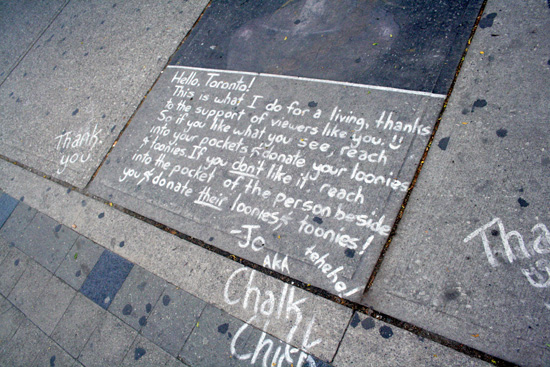 Hello, Toronto!
This is what I do for a living, thanks
to the support of viewers like you.
So if you like what you see, reach
into your pockets & donate your loonies
& toonies. If you don't like it, reach
into the pocket of the person beside
you & donate their loonies & toonies!
tehehe!
- Jo
AKA
Chalk
Chick
Thank
you.
Tha